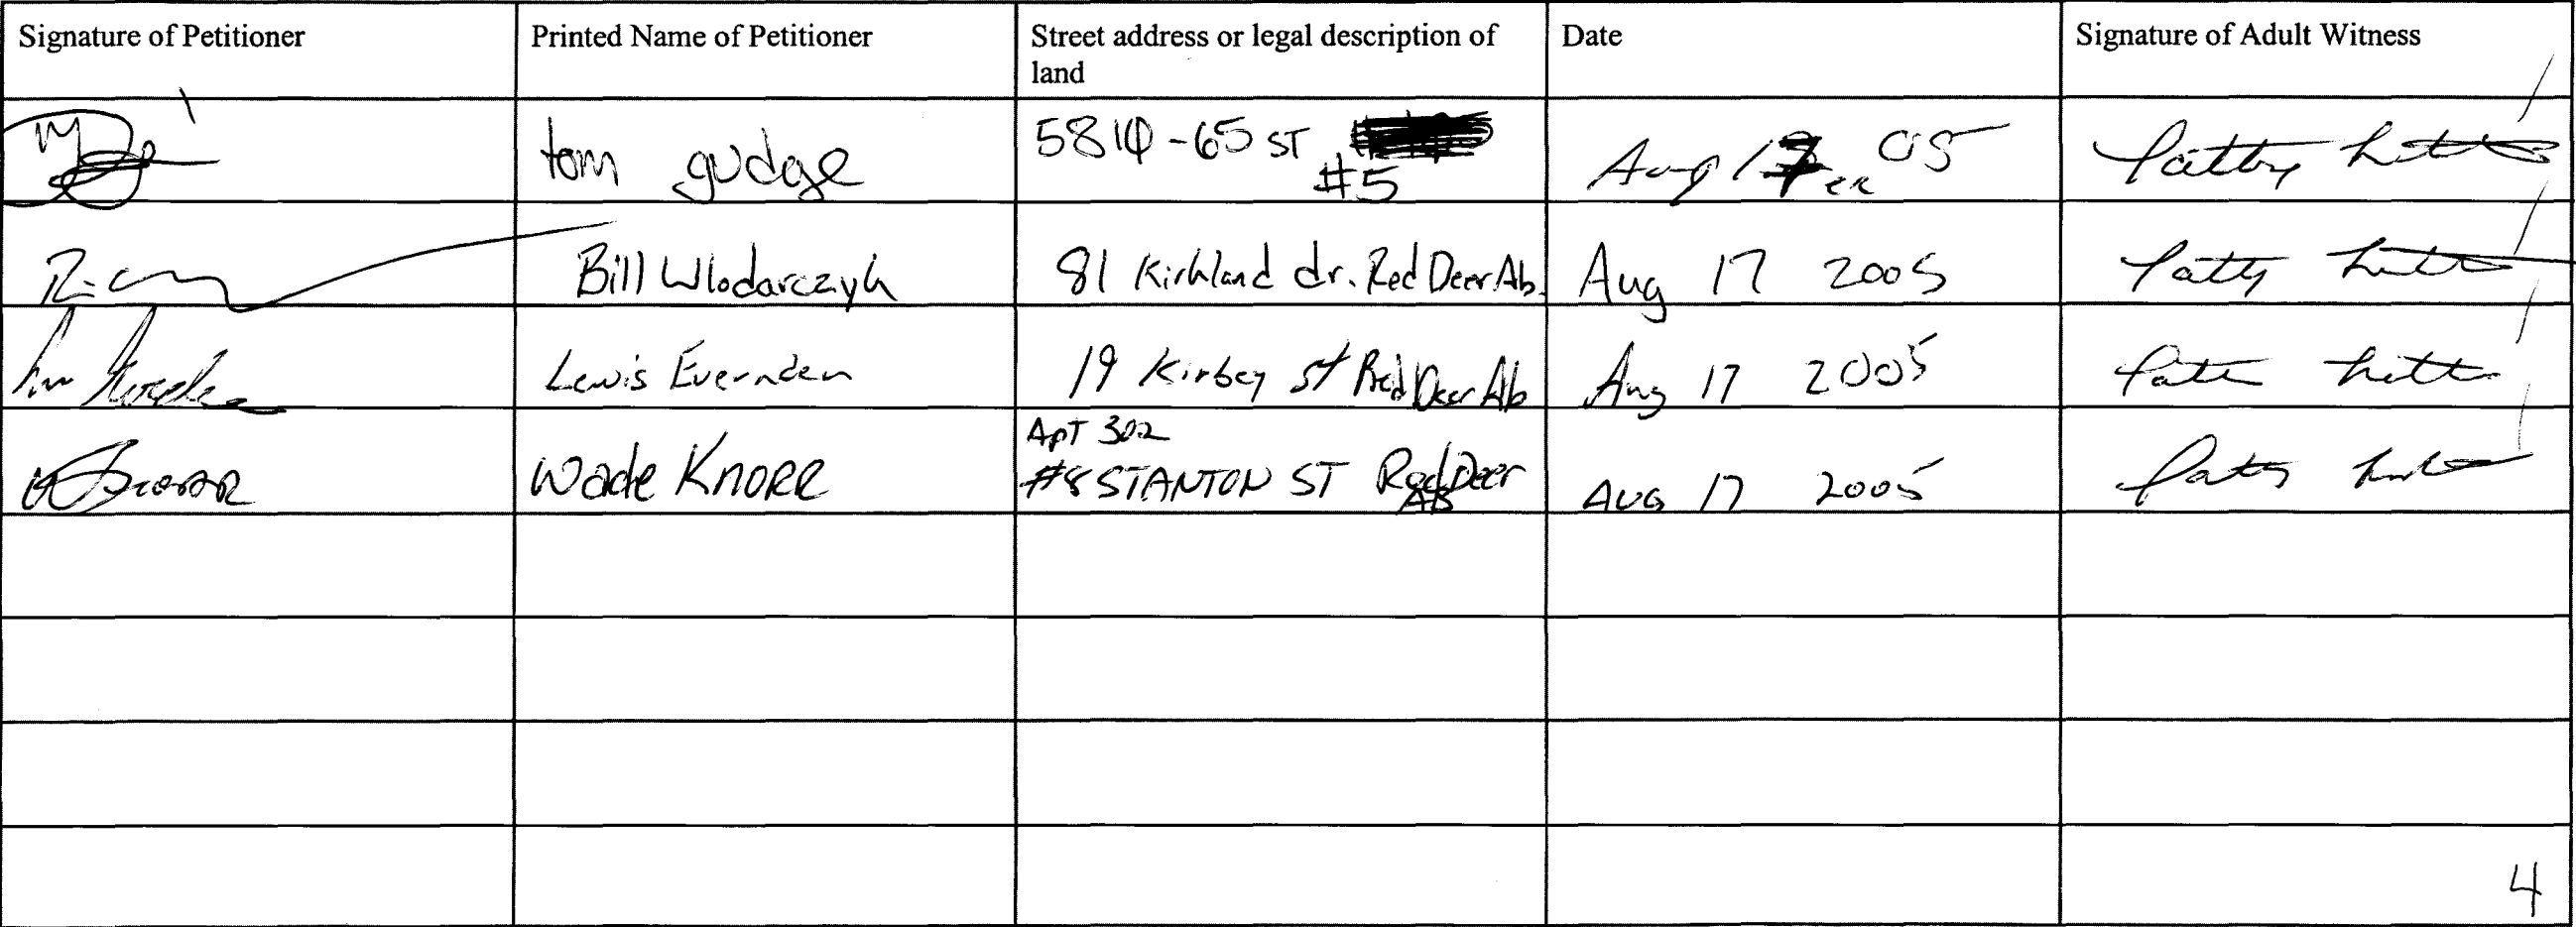 Signature of Petitioner Printed Name of Petitioner Street address or legal description of land Date Signature of Adult Witness
tom gudge 5810 -65 ST #5 Aug 17 05 Patty
Bill Wlodarczyk 81 Kirkland dr. Red Deer Ab. Aug 17 2005 Patty
Lewis Evernden 19 Kirbey st Red Deer Ab Aug 17 2005
Apt 302
Wade KNORR #8 STANTON ST Red Deer AB AUG 17 2005 Patty
4